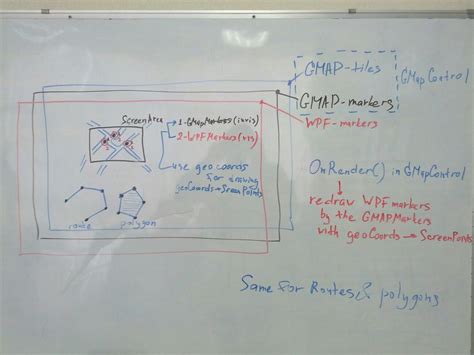 GMAP-tiles
GMapControl
GMAP-markers
WPF-markers
ScreenArea
1-GMapMarkers(invis)
2-WPFMarkers(vis)
use geoCoords
for drawing
geoCoords→ScreenPoints
route
polygon
OnRender() in GMapControl
redraw WPFmarkers
by the GMAPMarkers
with geoCoords→ScreenPoints
Same for Routes & polygons